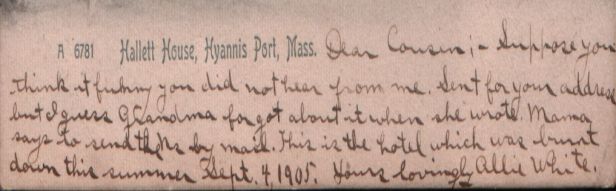 A 6781 Hallett House, Hyannis Port, Mass. Dear Cousin; - Suppose you
think it funny you did not hear from me. Sent for your address
but I guess Grandma forgot about it when she wrote. Mama
says to send the by mail. This is the hotel which was burnt
down this summer Sept. 4, 1905. Yours lovingly Allie White.